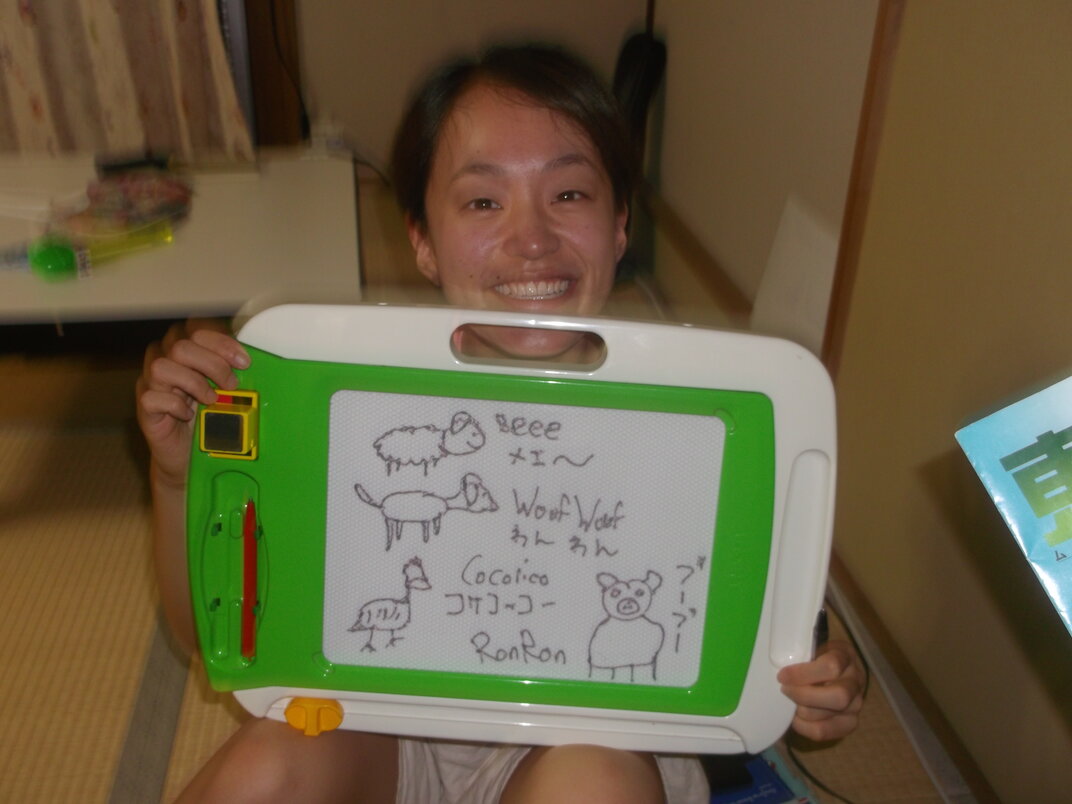 Beee
メエ〜
Woof Woof
わん わん
Cocorico
コケコッコー
RonRon
ブーブー